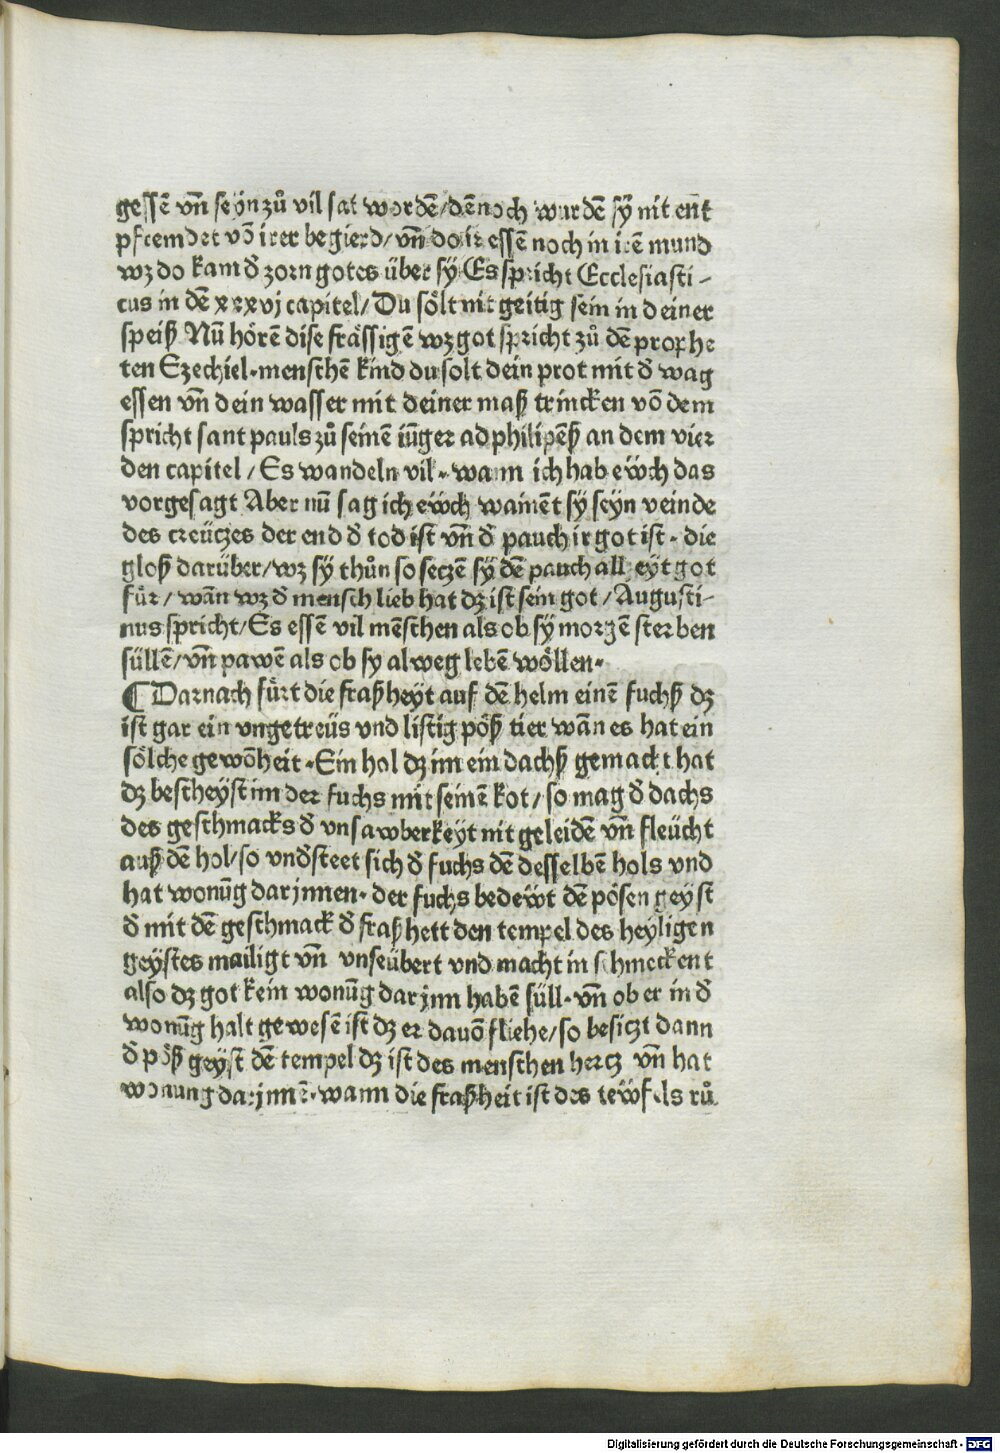 gessē vn̄ seynzů vil sat wordē/dēnoch wurdē sy̋ nit ent
pfremdet vō irer begierd/ vn̄ do ir essē noch in irē mund
wz do kam đ zorn gotes über sy̋ Es spricht Ecclesiasti-
cus in dē xxxvj capitel/ Du sölt nit geitig sein in deiner
speiß Nū hörē dise frässigē wz got spricht zů dē prophe
ten Ezechiel·menschē kind du solt dein prot mit đ wag
essen vn̄ dein wasser mit deiner maß trincken vō dem
spricht sant pauls zů seinē iūger ad philipēß an dem vier
den capitel / Es wandeln vil· wann ich hab ew̎ch das
vorgesagt Aber nū sag ich ew̎ch wainēt sy̋ sey̋n veinde
des creüczes der end đ tod ist vn̄ đ pauch ir got ist· die
gloß darüber/wz sy̋ thůn so seczē sy̋ dē pauch all eyt got
für/ wān wz đ mensch lieb hat dz ist sein got/Augusti-
nus spricht/Es essē vil mēschen als ob sy̋ morgē sterben
süllē/vn̄ pawē als ob sy alweg lebē wöllen·
¶ Darnach fürt die fraßheyt auf dē helm einē fuchß dz
ist gar ein vngetreüs vnd listig pöß tier wān es hat ein
sölche gewōheit·Ein hol dz im ein dachß gemacht hat
dz bescheyst im der fuchs mit seinē kot/ so mag đ dachs
des geschmacks đ vnsawberkey̋t nit geleidē vn̄ fleücht
auß dē hol/so vnđsteet sich đ fuchs dē desselbē hols vnd
hat wonūg darjnnen· der fuchs bedew̎t dē pösen geyst
đ mit dē geschmack đ fraßhett den tempel des heyligen
gey̋stes mailigt vn̄ vnseübert vnd macht in schmeckent
also dz got kein wonūg darjnn habē süll·vn̄ ob er in đ
wonūg halt gewesē ist dz er davō fliehe/so besiczt dann
đ pöß gey̋st dē tempel dz ist des menschen hercz vn̄ hat
wonung darjnnē·wann die fraßheit ist des tew̎fels rů
Digitalisierung gefördert durch die Deutsche Forschungsgemeinschaft - DFG